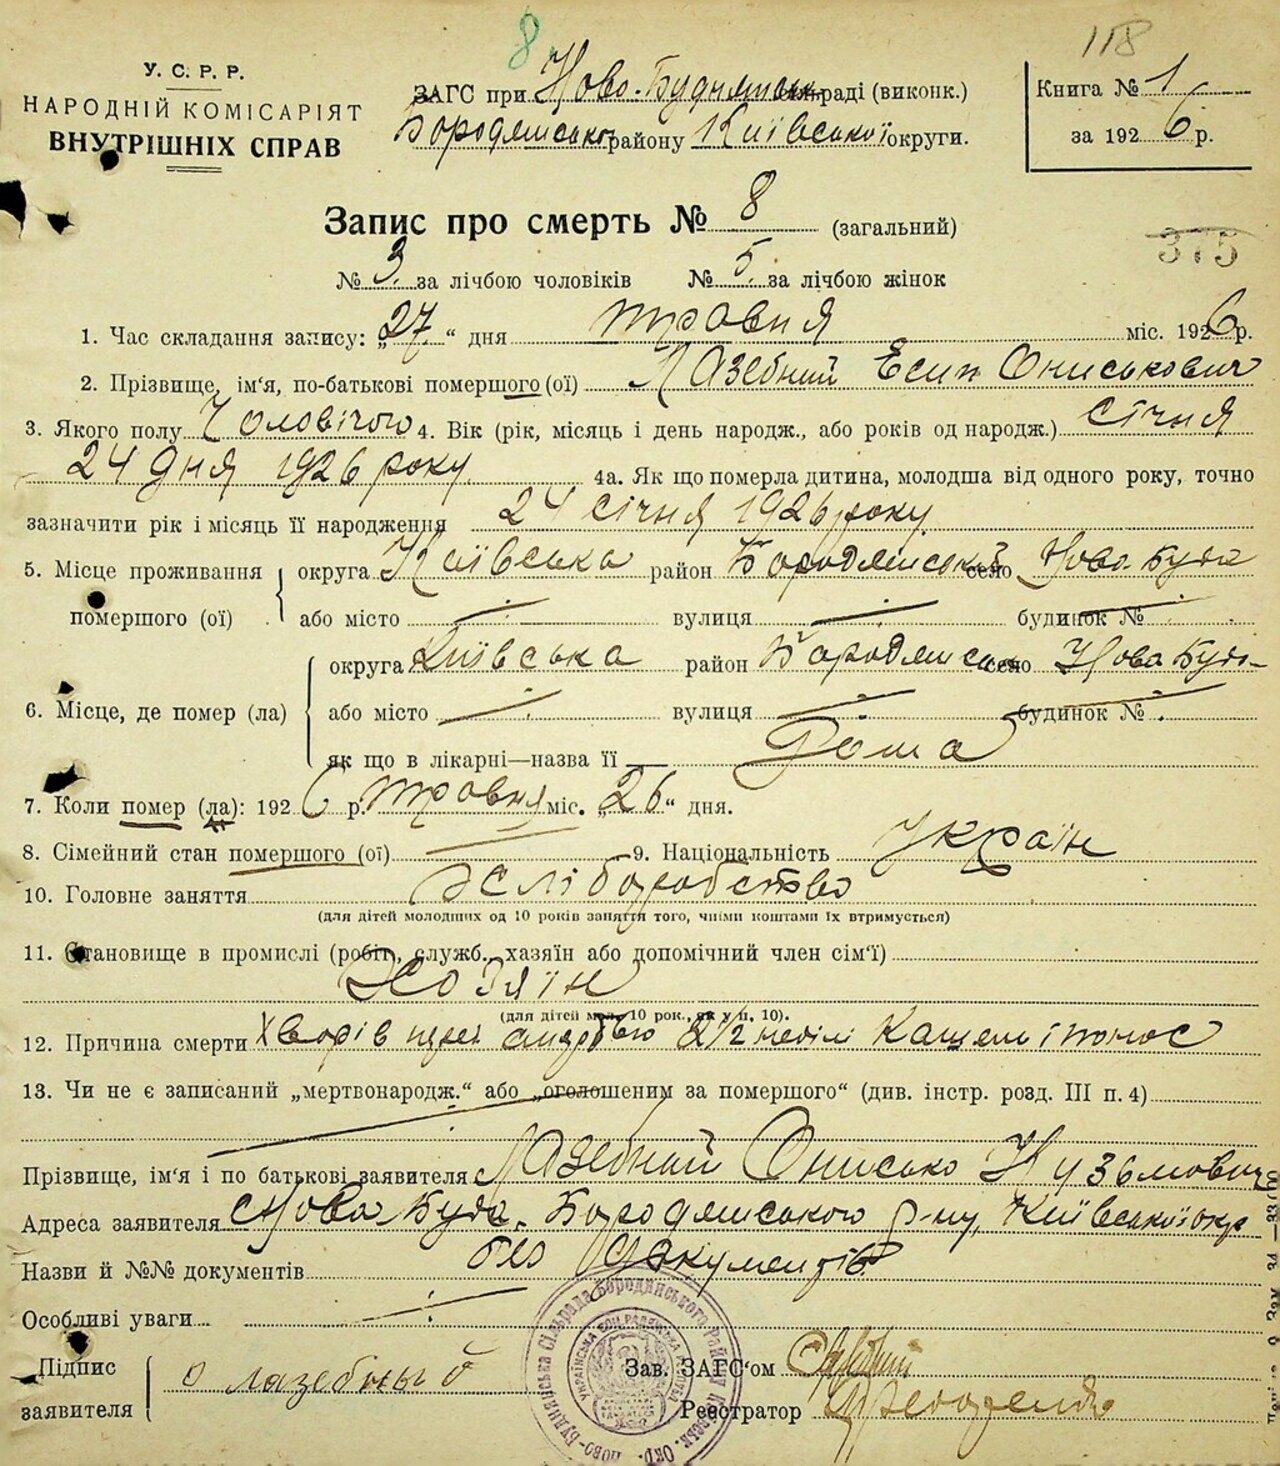 8
118
У. С. Р. Р.
НАРОДНІЙ КОМІСАРІЯТ
ВНУТРІШНІХ СПРАВ
ЗАГС при Ново-Буднянськ раді (виконк.)
Бородянського району Київської округи.
Книга № 1
за 1926 р.
Запис про смерть № 8 (загальний)
375
№ 3. за лічбою чоловіків № 5. за лічбою жінок
1. Час складання запису: „27.“ дня травня міс. 1926 р.
2. Прізвище, ім'я, по-батькові помершого (ої) Лазебний Есип Ониськович
3. Якого полу Чоловічого 4. Вік (рік, місяць і день народж., або років од народж.) Січня
24 дня 1926 року. 4а. Як що померла дитина, молодша від одного року, точно
зазначити рік і місяць її народження 24 січня 1926 року.
5. Місце проживання помершого (ої) округа Київська район Бородянський село Ново-Буда
або місто вулиця будинок №
6. Місце, де помер (ла) округа Київська район Бородянськ село Нова Буда
або місто вулиця будинок №
як що в лікарні—назва її Дома
7. Коли помер (ла): 1926 р. травня міс. „26“ дня.
8. Сімейний стан помершого (ої) 9. Національність Україн
10. Головне заняття Хліборобство
(для дітей молодших од 10 років заняття того, чиїми коштами їх втримується)
11. Становище в промислі (робіт., служб., хазяїн або допомічний член сім'ї)
Хозяїн
(для дітей мол. 10 рок., як у п. 10).
12. Причина смерти Хворів перед смертью 2 1/2 неділі Кашель і понос
13. Чи не є записаний „мертвонародж.“ або „оголошеним за помершого“ (див. інстр. розд. III п. 4)
Прізвище, ім'я і по батькові заявителя Лазебний Онисько Кузьмович
Адреса заявителя с Нова Буда, Бородянського р-ну, Київської окр
Назви й №№ документів без документів
Особливі уваги
Підпис заявителя О лазебный
Зав. ЗАГС'ом
Реєстратор
Ново-Буднянська Сільрада Бородянського Району Київськ. Окр.